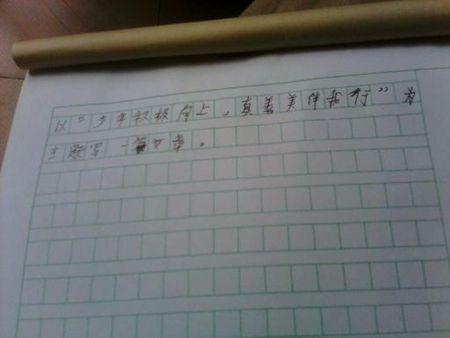 以“少年积极向上，真善美伴我行”为
主题写一篇文章。